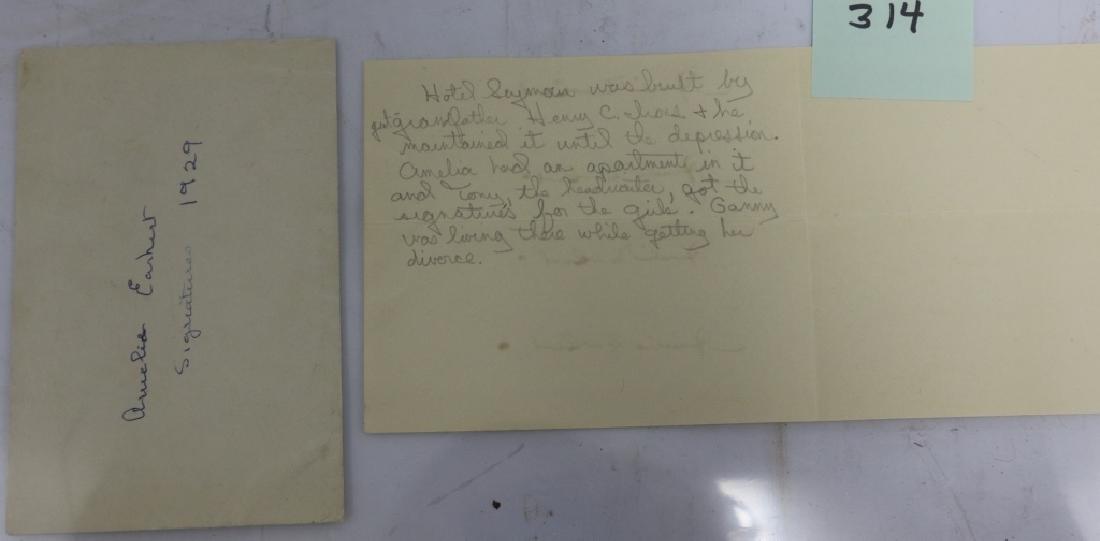 314
Amelia Earhart
Signatures 1929
Hotel Seymour was built by
grandfather Henry C. & he
maintained it until the depression.
Amelia had an apartment in it
and Tony, the headwaiter, got the
signatures for the girls. Ganny
was living there while getting her
divorce.